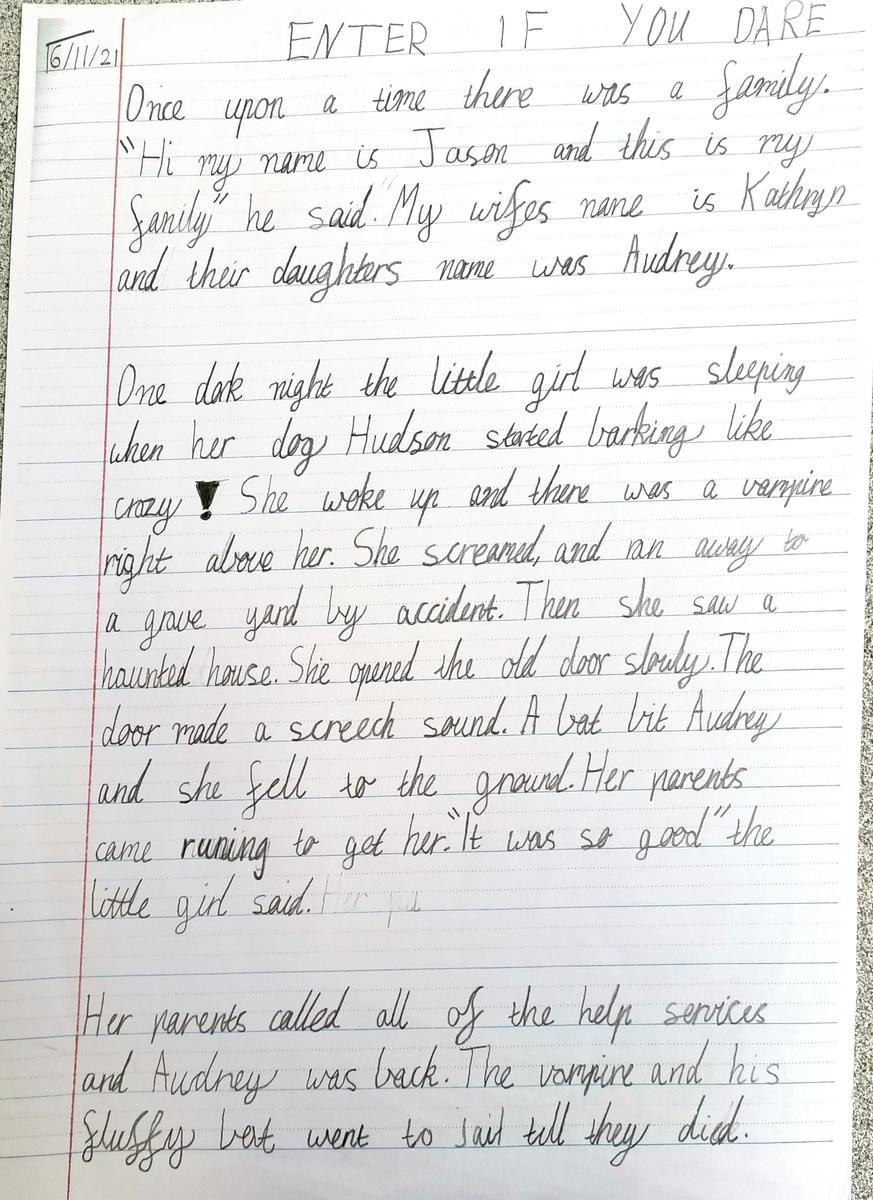 16/11/21
ENTER IF YOU DARE
Once upon a time there was a family.
"Hi my name is Jason and this is my
family" he said. "My wifes name is Kathryn
and their daughters name was Audrey.
One dark night the little girl was sleeping
when her dog Hudson started barking like
crazy! She woke up and there was a vampire
right above her. She screamed, and ran away to
a grave yard by accident. Then she saw a
haunted house. She opened the old door slowly. The
door made a screech sound. A bat bit Audrey
and she fell to the ground. Her parents
came runing to get her. "It was so good" the
little girl said. Her pa
Her parents called all of the help services
and Audrey was back. The vampire and his
fluffy bat went to jail till they died.